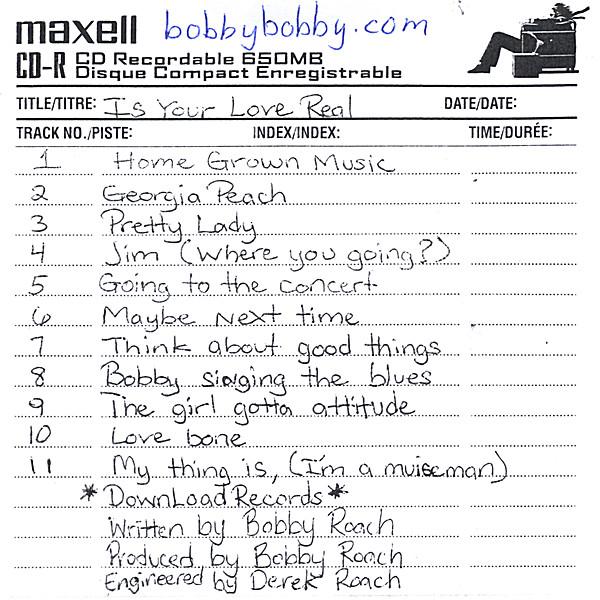 maxell bobbybobby.com
CD-R CD Recordable 650MB
Disque Compact Enregistrable
TITLE/TITRE: Is Your Love Real DATE/DATE:
TRACK NO./PISTE: INDEX/INDEX: TIME/DURÉE:
1 Home Grown Music
2 Georgia Peach
3 Pretty Lady
4 Jim (Where you going?)
5 Going to the concert
6 Maybe Next time
7 Think about good things
8 Bobby singing the blues
9 The girl gotta attitude
10 Love bone
11 My thing is, (I'm a muiseman)
*DownLoad Records*
Written by Bobby Roach
Produced by Bobby Roach
Engineered by Derek Roach